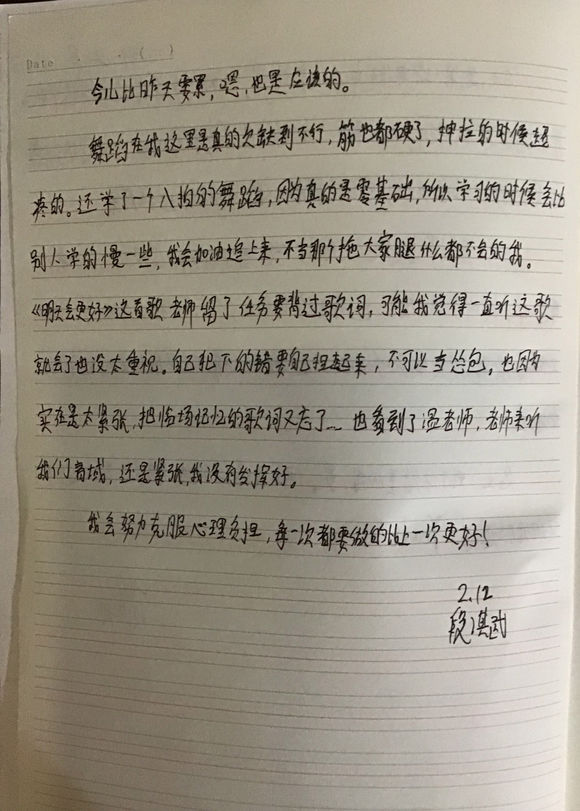 Date . . ( )
今儿比昨天要累，嗯，也是应该的。
舞蹈在我这里是真的欠缺到不行，筋也都硬了，抻拉的时候超
疼的。还学了一个八拍的舞蹈，因为真的是零基础，所以学习的时候会比
别人学的慢一些，我会加油追上来，不当那个拖大家腿什么都不会的我。
《明天会更好》这首歌老师留了任务要背过歌词，可能我觉得一直听这歌
就会了也没太重视。自己犯下的错要自己担起来，不可以当怂包，也因为
实在是太紧张，把临场记忆的歌词又忘了… 也看到了温老师，老师来听
我们音域，还是紧张，我没有发挥好。
我会努力克服心理负担，每一次都要做的比上一次更好！
2.12
段淇武